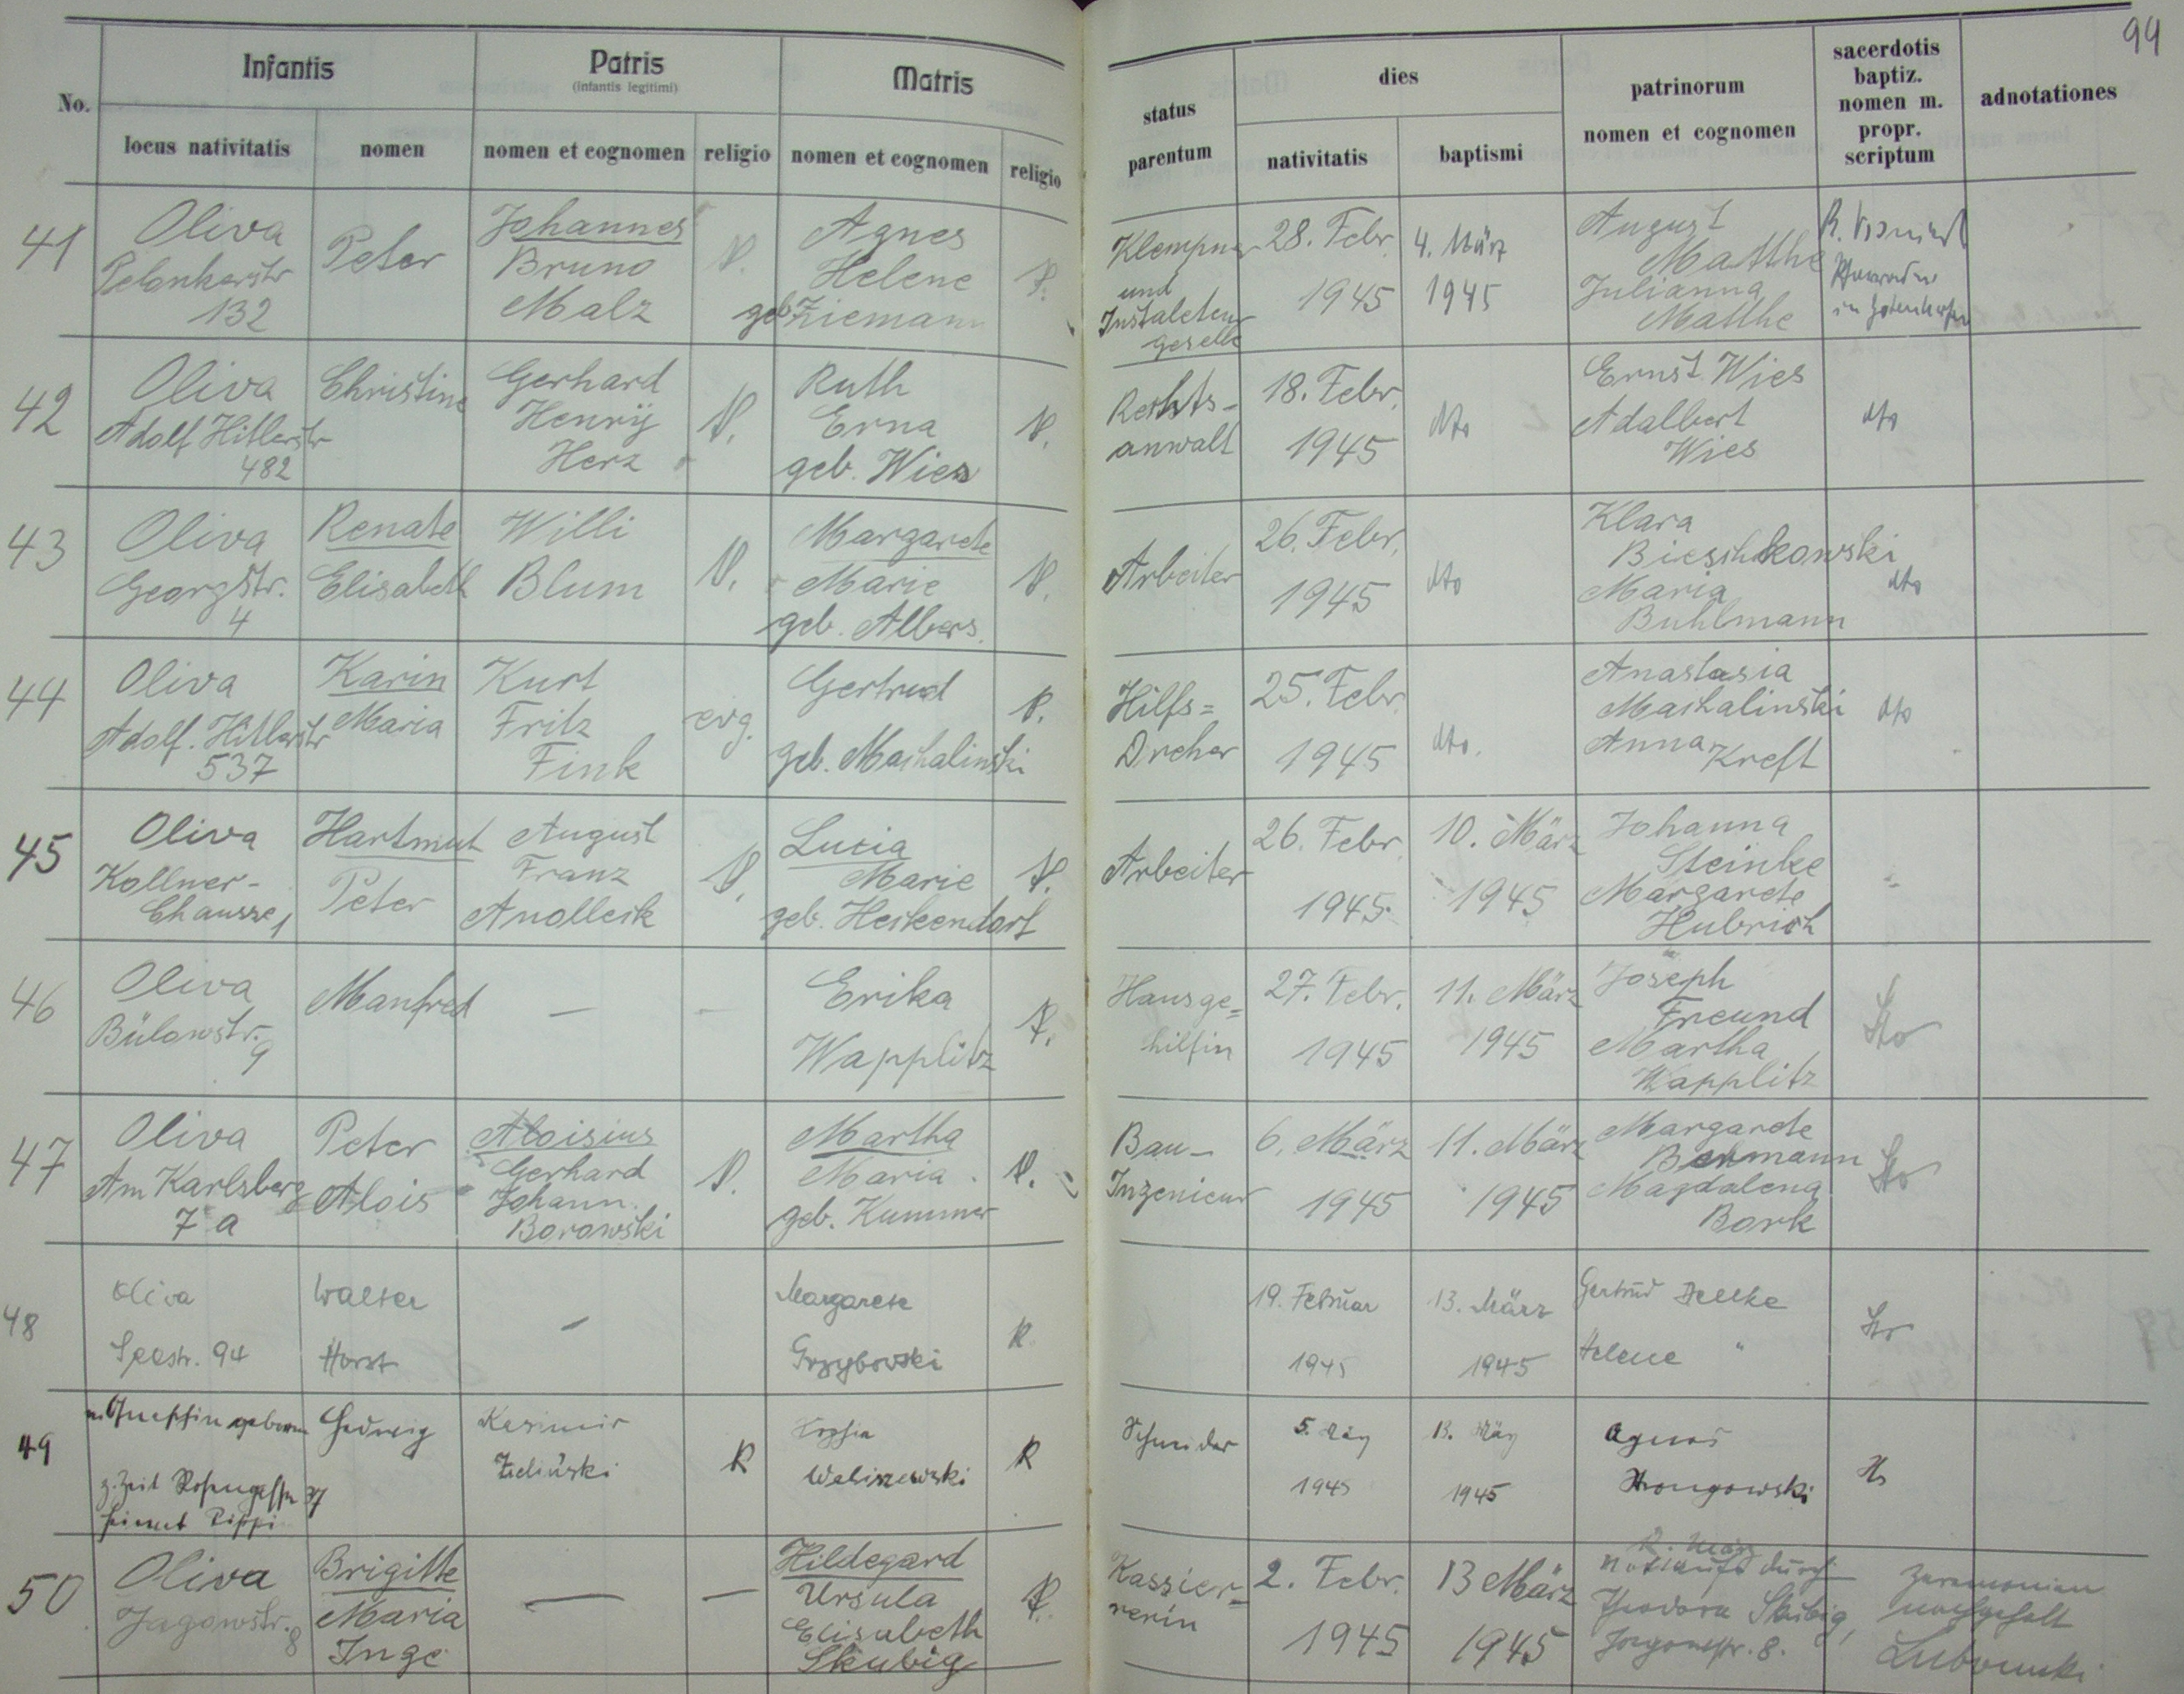 94
No.
Infantis
locus nativitatis
nomen
Patris
(infantis legitimi)
nomen et cognomen
religio
Matris
nomen et cognomen
religio
status
parentum
dies
nativitatis
baptismi
patrinorum
nomen et cognomen
sacerdotis
baptiz.
nomen m.
propr.
scriptum
adnotationes
41
Oliva
Pelonkerstr
132
Peter
Johannes
Bruno
Malz
Agnes
Helene
geb. Ziemann
Klempner
und
geselle
28. Febr.
1945
4. März
1945
August
Matthe
Julianna
Matthe
42
Oliva
Adolf Hitlerstr
482
Christine
Gerhard
Henry
Herz
Ruth
Erna
geb. Wies
Rechts-
anwalt
18. Febr.
1945
dto
Ernst Wies
Adalbert
Wies
dto
43
Oliva
Georgstr.
4
Renate
Elisabeth
Willi
Blum
Margarete
Marie
geb. Albers.
Arbeiter
26. Febr.
1945
dto
Klara
Bieschkowski
Maria
Buhlmann
dto
44
Oliva
Adolf. Hitlerstr
537
Karin
Maria
Kurt
Fritz
Fink
evg.
Gertrud
geb. Machalinski
R.
Hilfs=
Dreher
25. Febr.
1945
dto.
Anastasia
Machalinski
Anna Kreft
dto
45
Oliva
Kollner-
Chausse 1
Hartmut
Peter
August
Franz
Lucia
Marie
Arbeiter
26. Febr.
1945
10. März
1945
Johanna
Steinke
Margarete
Hubrich
46
Oliva
Bülowstr.
9
Manfred
—
Erika
Wapplitz
R.
Hausge=
hilfin
27. Febr.
1945
11. März
1945
Joseph
Freund
Martha
Wapplitz
47
Oliva
Am Karlsberg
7a
Peter
Alois
Aloisius
Gerhard
Johann
Borowski
Martha
Maria
geb. Kummer
Bau-
Ingenieur
6. März
1945
11. März
1945
Margarete
Magdalena
Bork
48
Oliva
Seestr. 94
Walter
Horst
Margarete
Grzybowski
R
19. Februar
1945
13. März
1945
Gertrud
Helene "
49
Hedwig
Kasimir
Zieliński
R
R
5. März
1945
13. März
1945
Agnes
50
Oliva
Jagowstr. 8
Brigitte
Maria
Inge
—
—
Hildegard
Ursula
Elisabeth
Skubig
R.
Kassier=
rerin
2. Febr.
1945
13 März
1945
Nottaufe durch
Theodora Skubig,
Jagowstr. 8.
Zeremonien
nachgeholt